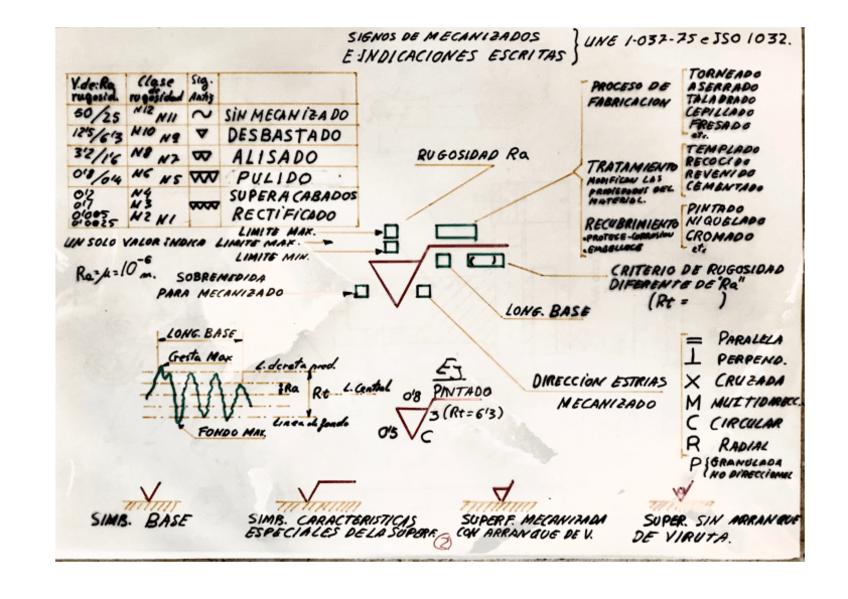 SIGNOS DE MECANIZADOS
E INDICACIONES ESCRITAS
UNE 1-037-75 e ISO 1032.
V. de: Ra rugosid.
Clase de rugosidad
Sig. Antig
50/25 N12 N11 SIN MECANIZADO
12'5/6'3 N10 N9 DESBASTADO
3'2/1'6 N8 N7 ALISADO
0'8/0'4 N6 N5 PULIDO
0'2 N4 SUPERACABADOS
0'1 N3
0'05 N2 N1 RECTIFICADO
0'0025
PROCESO DE
FABRICACION
TORNEADO
ASERRADO
TALADRADO
CEPILLADO
FRESADO
etc.
RUGOSIDAD Ra
TRATAMIENTO
MODIFICAN LAS
PROPIEDADES DEL
MATERIAL.
TEMPLADO
RECOCIDO
REVENIDO
CEMENTADO
RECUBRIMIENTO
PROTEGE-CORROSION
EMBELLECE
PINTADO
NIQUELADO
CROMADO
etc.
LIMITE MAX.
UN SOLO VALOR INDICA LIMITE MAX.
LIMITE MIN.
Ra=µ=10⁻⁶ m.
SOBREMEDIDA
PARA MECANIZADO
CRITERIO DE RUGOSIDAD
DIFERENTE DE "Ra"
(Rt = )
LONG. BASE
LONG. BASE
Cresta Max
L. cresta prod.
Ra
Rt
L. Central
Linea de fondo
FONDO MAX.
Ej
PINTADO
0'8
3 (Rt=6'3)
0'5
C
DIRECCION ESTRIAS
MECANIZADO
= PARALELA
⊥ PERPEND.
X CRUZADA
M MULTIDIRECC.
C CIRCULAR
R RADIAL
P { GRANULADA
NO DIRECCIONAL
SIMB. BASE
SIMB. CARACTERISTICAS
ESPECIALES DE LA SUPERF.
2
SUPERF. MECANIZADA
CON ARRANQUE DE V.
SUPER. SIN ARRANQUE
DE VIRUTA.